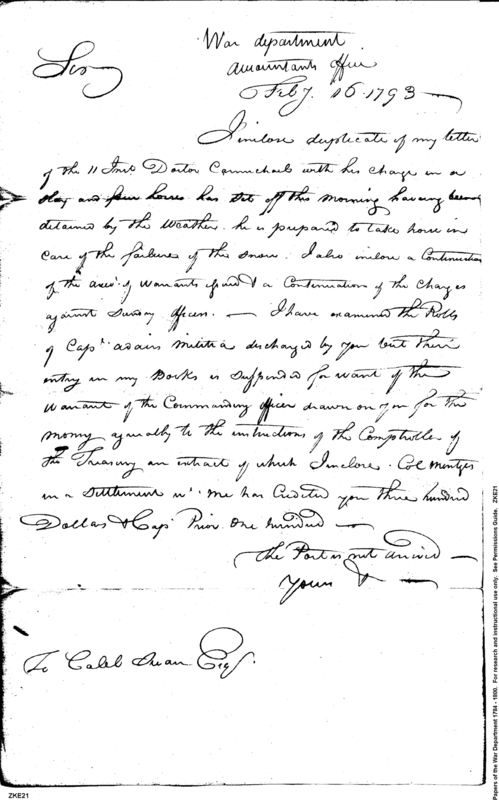 War department
Accountants office
Sir
Feby. 16. 1793
I inclose duplicate of my letter
of the 11 Inst. Doctor Carmichael with his charge in a
slay and four horses has set off this morning having been
detained by the weather. he is prepared to take horse in
case of the failure of the snow. I also inclose a Continuation
of the accot. of warrants issued & a Continuation of the Charges
against Sundry officers. — I have examined the Rolls
of Capt. adairs militia discharged by you but their
entry in my Books is suspended for want of the
warrant of the Commanding officer drawn on you for the
money agreeably to the instructions of the Comptroller of
the Treasury an extract of which I inclose. Col.
in a Settlement wt. me has Credited you three hundred
Dollars & Capt. Prior one hundred —
the Post is not arrived —
Yours & —
To Caleb Swan Esqr.
Papers of the War Department 1784 - 1800. For research and instructional use only. See Permissions Guide. ZKE21
ZKE21